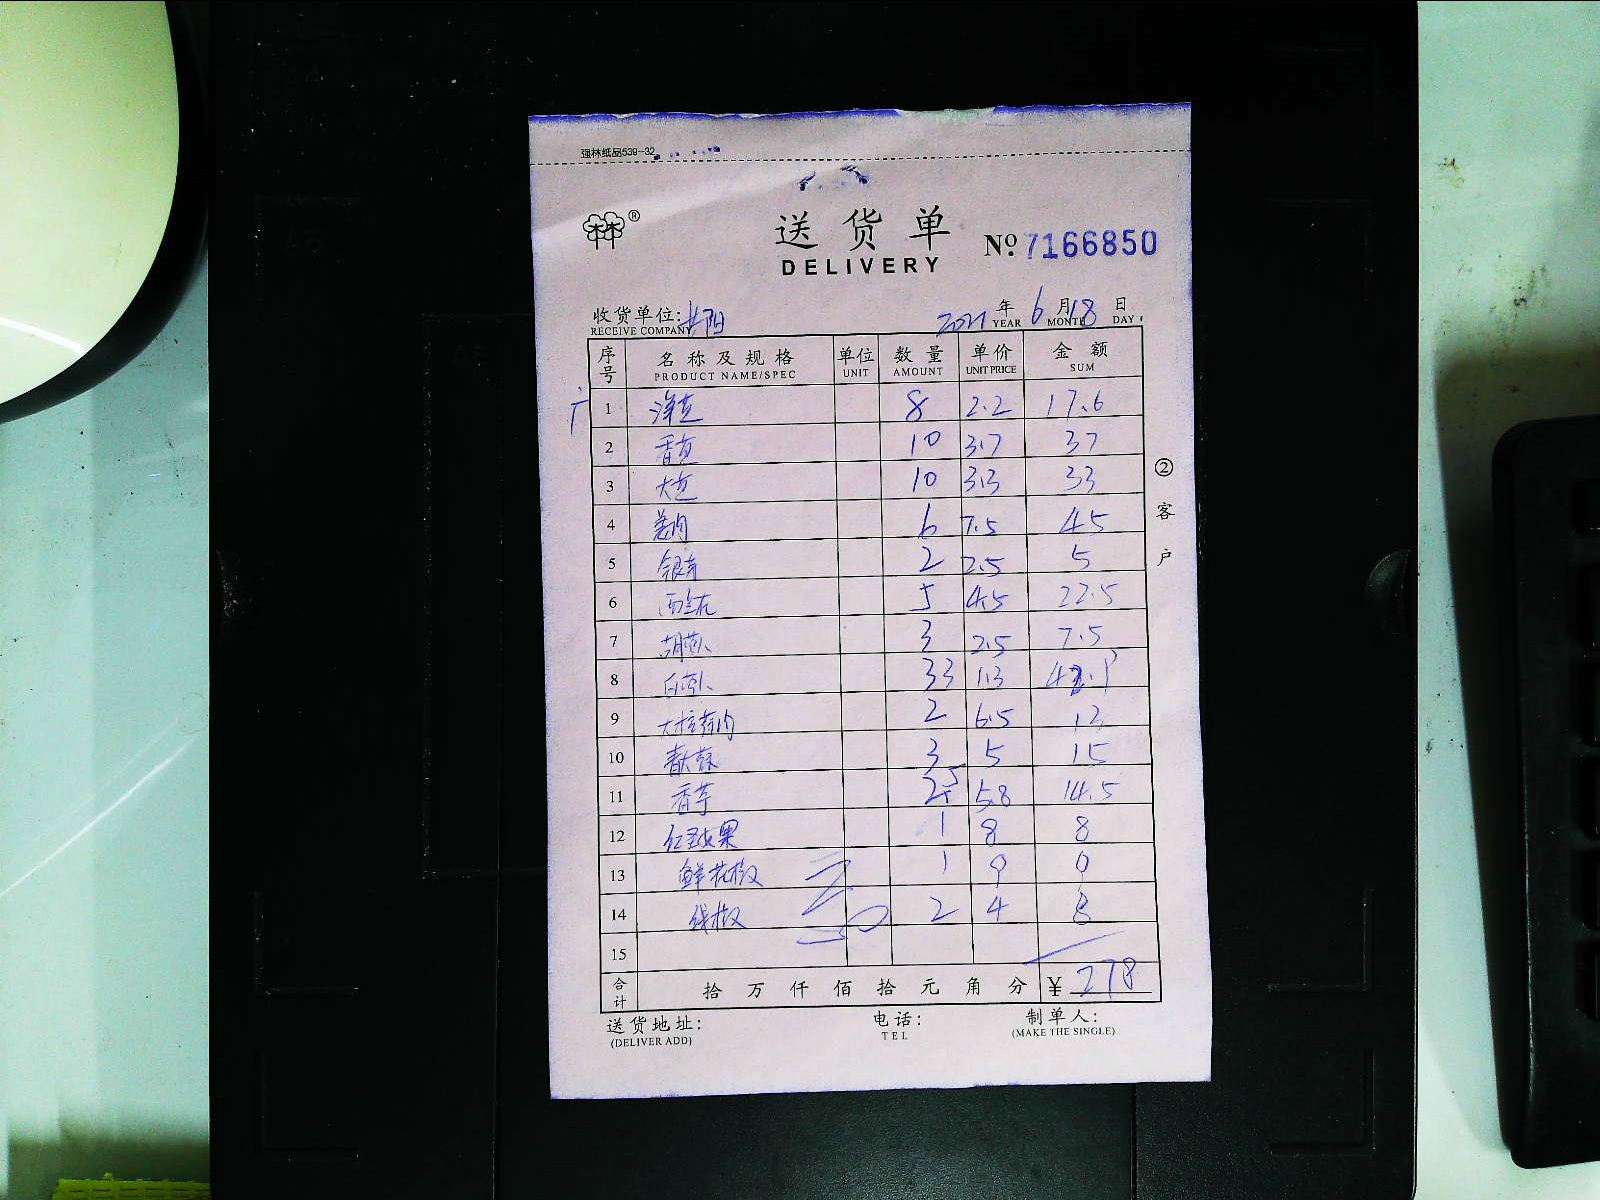 强林纸品539-32
送货单
DELIVERY
№ 7166850
收货单位:
RECEIVE COMPANY
2021 年 YEAR 6 月 MONTH 18 日 DAY
序号 名称及规格 PRODUCT NAME/SPEC 单位 UNIT 数量 AMOUNT 单价 UNIT PRICE 金额 SUM
1 洋芋 8 2.2 17.6
2 10 3.7 37
3 10 3.3 33
4 6 7.5 45
5 2 2.5 5
6 5 4.5 22.5
7 胡萝卜 3 2.5 7.5
8 白萝卜 33 1.3
9 2 6.5 13
10 3 5 15
11 香芋 2.5 5.8 14.5
12 红圣女果 1 8 8
13 鲜花椒 1 9 9
14 线椒 2 4 8
15
合计 拾 万 仟 佰 拾 元 角 分 ¥ 278
② 客户
送货地址:
(DELIVER ADD)
电话:
TEL
制单人:
(MAKE THE SINGLE)